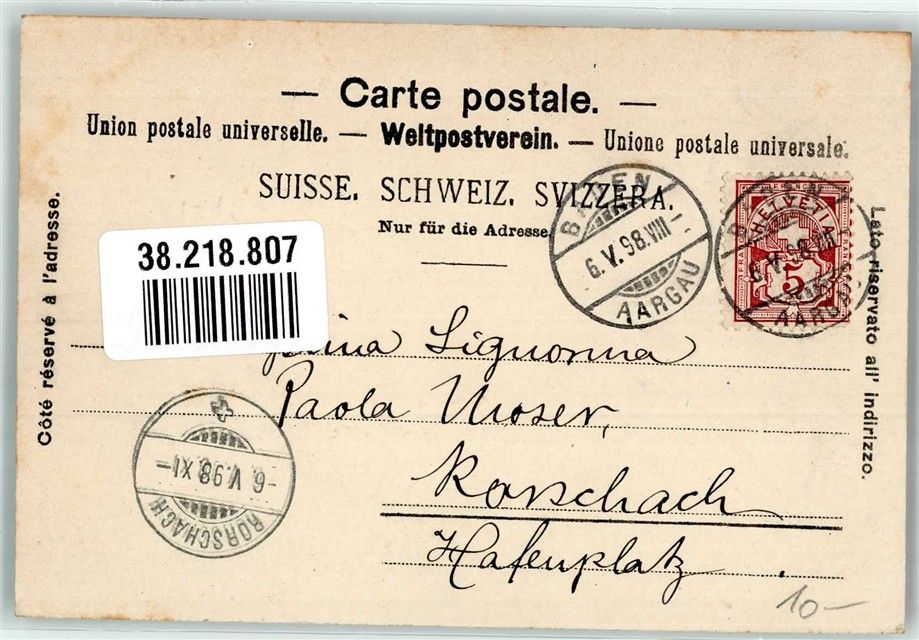 — Carte postale. —
Union postale universelle. — Weltpostverein. — Unione postale universale.
SUISSE. SCHWEIZ. SVIZZERA.
Nur für die Adresse.
Côté réservé à l'adresse.
Lato riservato all' indirizzo.
38.218.807
BADEN
6.V.98.VIII–
AARGAU
HELVETIA
5
BADEN
6.V.98.VIII
AARGAU
Signorina
Paola Moser,
Rorschach
Hafenplatz.
–6.V.98.XI–
RORSCHACH
10–